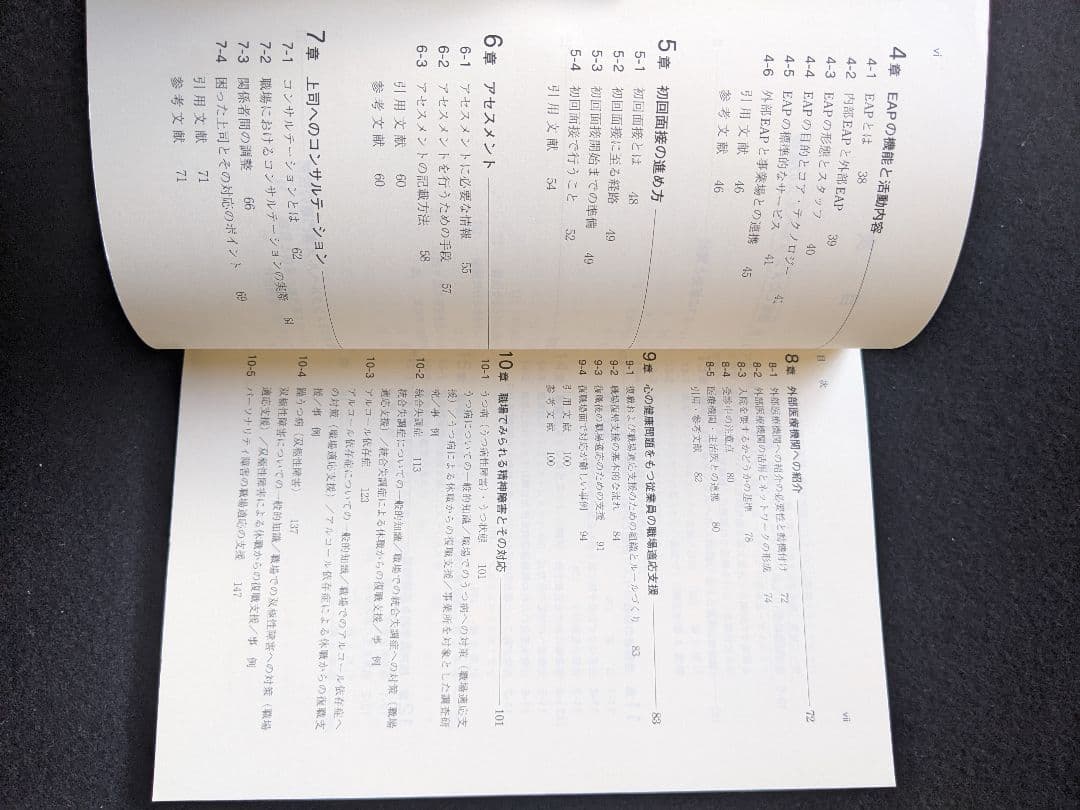 vi
4章 EAPの機能と活動内容
4-1 EAPとは 38
4-2 内部EAPと外部EAP 39
4-3 EAPの形態とスタッフ 40
4-4 EAPの目的とコア・テクノロジー 41
4-5 EAPの標準的なサービス 41
4-6 外部EAPと事業場との連携 45
引用文献 46
参考文献 46
5章 初回面接の進め方
5-1 初回面接とは 48
5-2 初回面接に至る経路 49
5-3 初回面接開始までの準備 49
5-4 初回面接で行うこと 52
引用文献 54
6章 アセスメント
6-1 アセスメントに必要な情報 55
6-2 アセスメントを行うための手段 57
6-3 アセスメントの記載方法 58
引用文献 60
参考文献 60
7章 上司へのコンサルテーション
7-1 コンサルテーションとは 62
7-2 職場におけるコンサルテーションの実際 64
7-3 関係者間の調整 66
7-4 困った上司とその対応のポイント 69
引用文献 71
参考文献 71
目次 vii
8章 外部医療機関への紹介 72
8-1 外部医療機関への紹介の必要性と動機付け 72
8-2 外部医療機関の活用とネットワークの形成 74
8-3 入院を要するかどうかの基準 78
8-4 受診中の注意点 80
8-5 医療機関・主治医との連携 80
引用・参考文献 82
9章 心の健康問題をもつ従業員の職場適応支援 83
9-1 復職および職場適応支援のための組織とルールづくり 83
9-2 職場復帰支援の基本的な流れ 84
9-3 復職後の職場適応のための支援 91
9-4 復職場面で対応が難しい事例 94
引用文献 100
参考文献 100
10章 職場でみられる精神障害とその対応 101
10-1 うつ病(うつ病性障害)・うつ状態 101
うつ病についての一般的知識／職場でのうつ病への対策(職場適応支
援)／うつ病による休職からの復職支援／事業所を対象とした調査研
究／事例
10-2 統合失調症 113
統合失調症についての一般的知識／職場での統合失調症への対策(職場
適応支援)／統合失調症による休職からの復職支援／事例
10-3 アルコール依存症 123
アルコール依存症についての一般的知識／職場でのアルコール依存症へ
の対策(職場適応支援)／アルコール依存症による休職からの復職支
援／事例
10-4 躁うつ病(双極性障害) 137
双極性障害についての一般的知識／職場での双極性障害への対策(職場
適応支援)／双極性障害による休職からの復職支援／事例
10-5 パーソナリティ障害の職場適応の支援 147